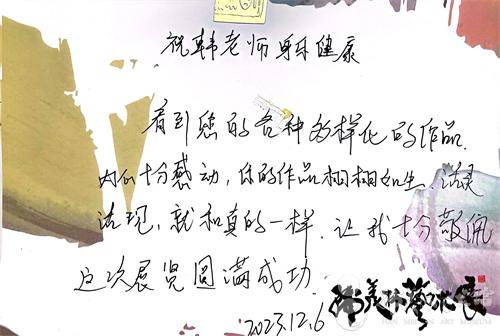 祝韩老师身体健康
看到您的各种多样化的作品.
内心十分感动,你的作品栩栩如生.活灵
活现,就和真的一样.让我十分敬佩
这次展览圆满成功.
2023.12.6